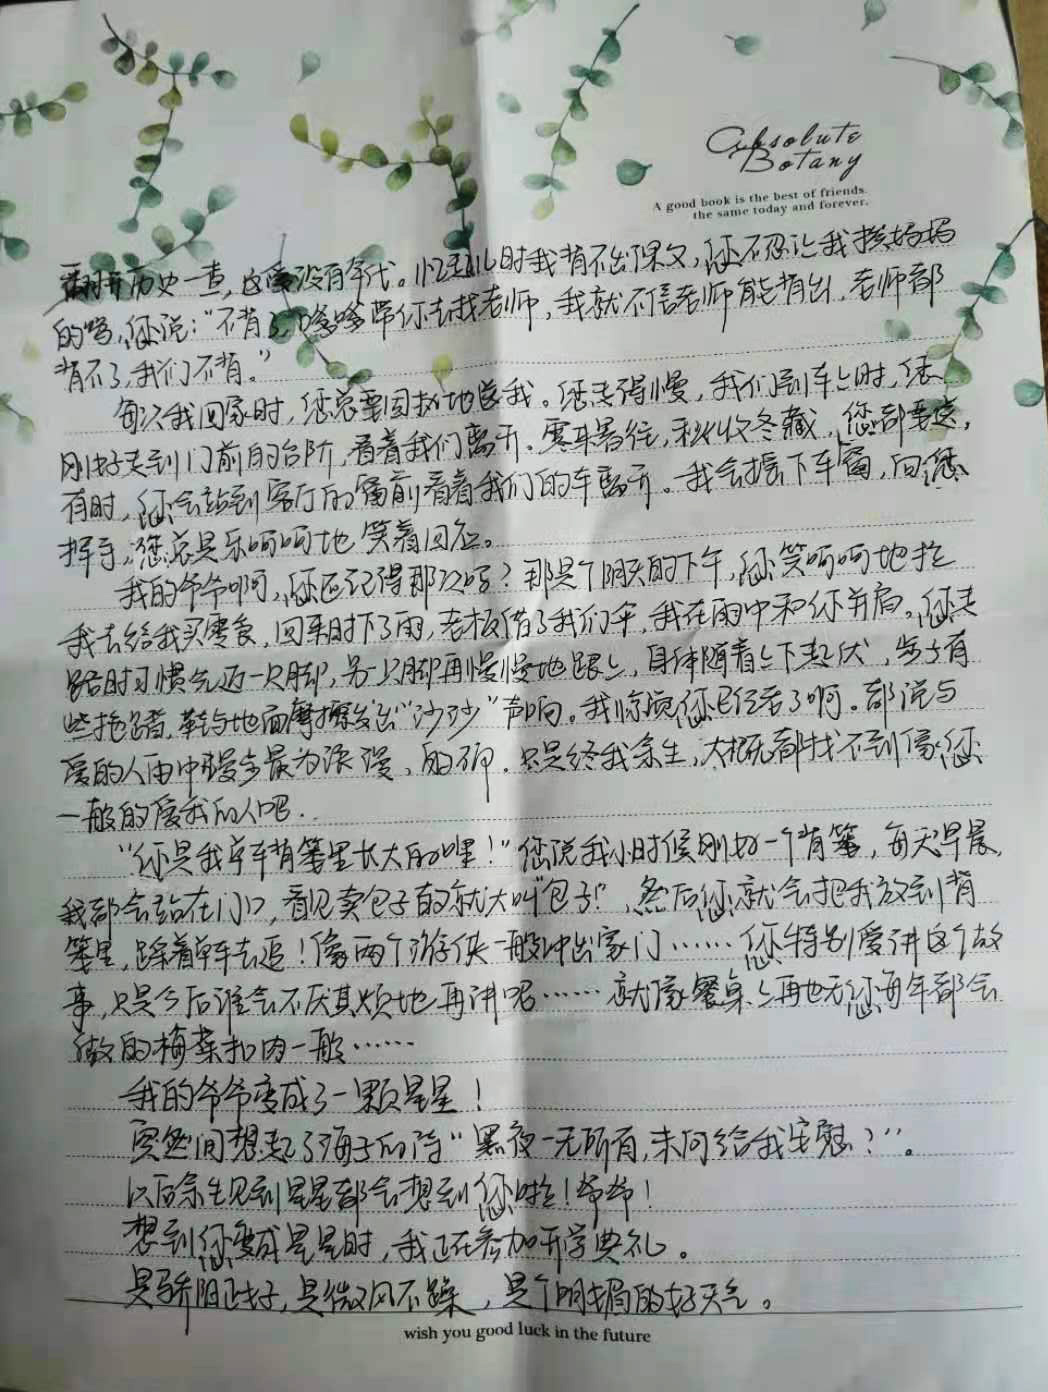 Absolute
Botany
A good book is the best of friends.
the same today and forever.
翻开历史一查，这爱没有年代。忆起儿时我背不出课文，您不忍让我挨妈妈
的骂，您说：“不背了，爹爹带你去找老师，我就不信老师能背出，老师都
背不了，我们不背。”
每次我回家时，您总要固执地送我。您走得慢，我们到车上时，您
刚好走到门前的台阶，看着我们离开。寒来暑往，秋收冬藏，您都要送，
有时，您会站到客厅的窗前看着我们的车离开。我会摇下车窗，向您
挥手，您总是乐呵呵地笑着回应。
我的爷爷啊，您还记得那次吗？那是个阴天的下午，您笑呵呵地拉
我去给我买零食，回来时下了雨，老板借了我们伞，我在雨中和您并肩。您走
路时习惯先迈一只脚，另一只脚再慢慢地跟上，身体随着上下起伏，步子有
些拖沓，鞋与地面摩擦发出“沙沙”声响。我惊觉您已经老了啊。都说与
爱的人雨中漫步最为浪漫，的确，只是终我余生，大概都找不到像您
一般的爱我的人吧..
“你是我单车背篓里长大的哩！”您说我小时候刚好一个背篓，每天早晨，
我都会站在门口，看见卖包子的就大叫“包子！”，然后您就会把我放到背
篓里，踩着单车去追！像两个游侠一般冲出家门……您特别爱讲这个故
事，只是今后谁会不厌其烦地再讲呢……就像餐桌上再也无您每年都会
做的梅菜扣肉一般……
我的爷爷变成了一颗星星！
突然间想起了海子的诗“黑夜一无所有，未何给我安慰？”。
以后余生见到星星都会想到您啦！爷爷！
想到您变成星星时，我正在参加开学典礼。
是骄阳正好，是微风不躁，是个明媚的好天气。
wish you good luck in the future